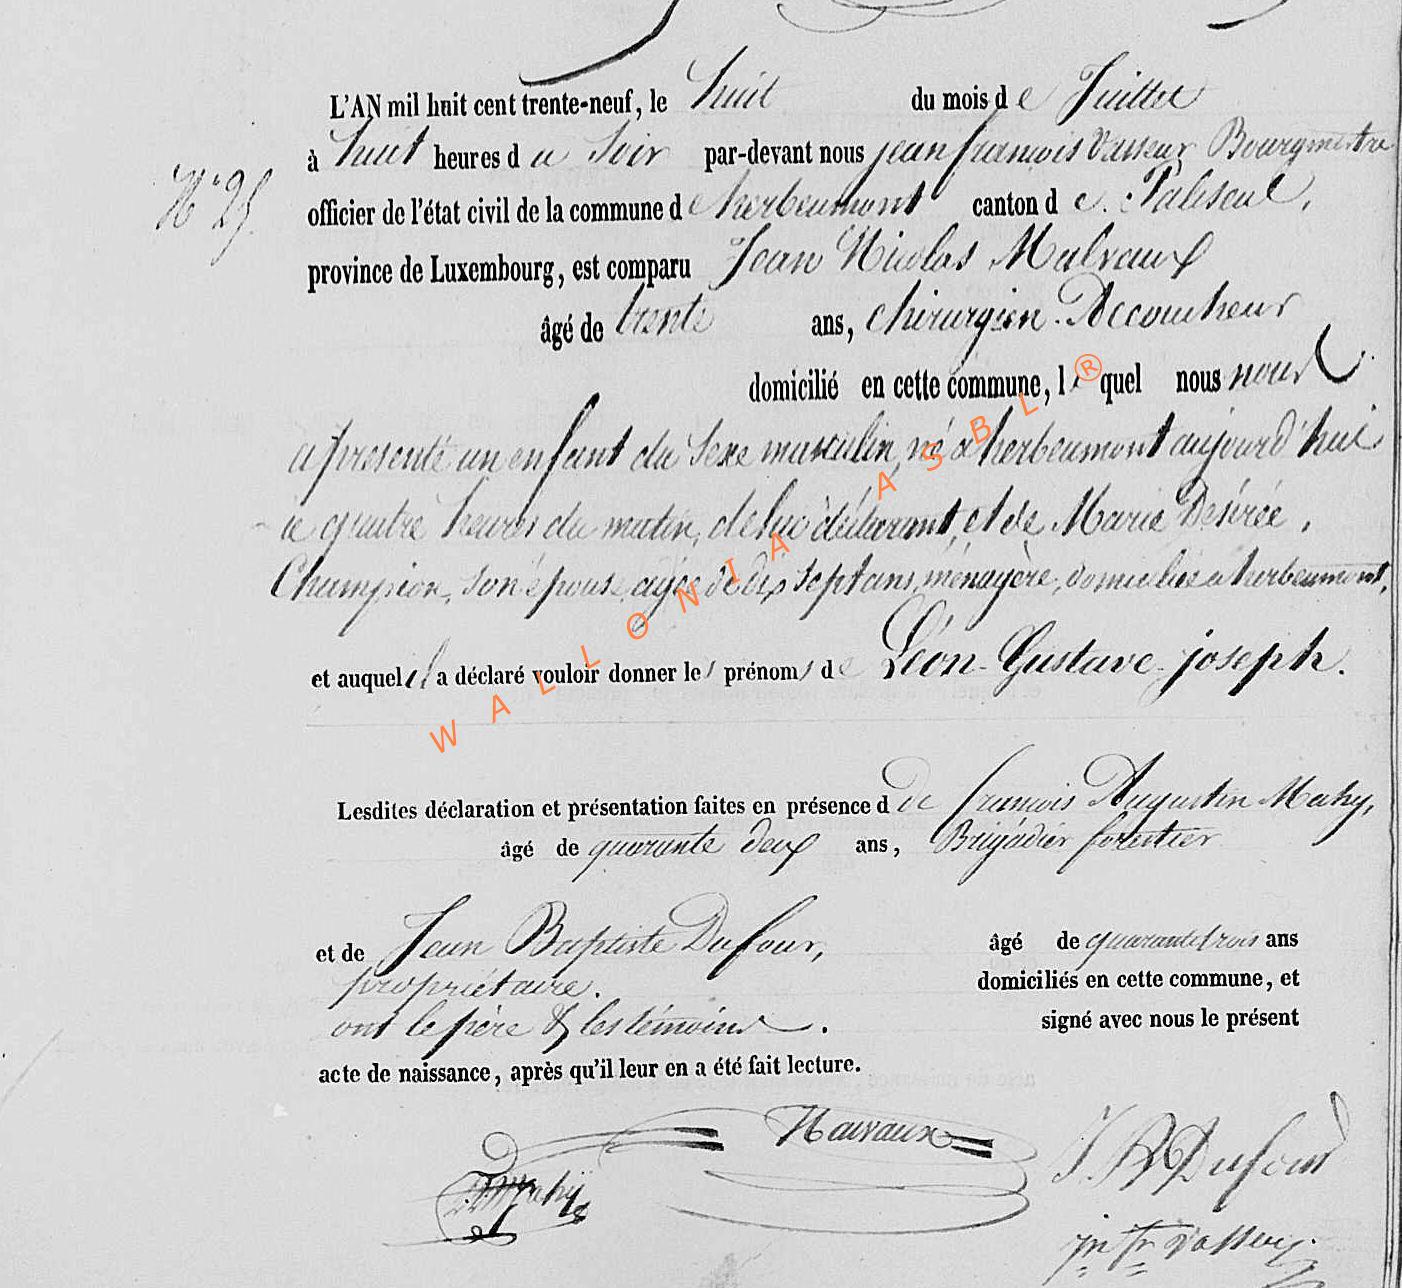 L'AN mil huit cent trente-neuf, le huit du mois de Juillet
à huit heures du Soir par-devant nous jean françois Vasseur Bourgmestre
N° 25.
officier de l'état civil de la commune de herbeumont canton de Paliseul,
province de Luxembourg, est comparu Jean Nicolas Malvaux
âgé de trente ans, chirurgien-Accoucheur
domicilié en cette commune, lequel nous nous
a présenté un enfant du Sexe masculin, né à herbeumont aujourd'hui
à quatre heures du matin, de lui déclarant, et de Marie Desirée
Champion, son épouse, agée de dix Sept ans, ménagère, domiciliés à herbeumont,
et auquel il a déclaré vouloir donner les prénoms de Léon-Gustave-joseph.
Lesdites déclaration et présentation faites en présence d de françois Augustin Mahy,
âgé de quarante deux ans, Brigadier forestier
et de Jean Baptiste Dufour, âgé de quarante trois ans
propriétaire. domiciliés en cette commune, et
ont le père & les témoins. signé avec nous le présent
acte de naissance, après qu'il leur en a été fait lecture.
Malvaux
Mahÿ
J. B Dufour
jn fr Vasseur
WALLONIA ASBL ®